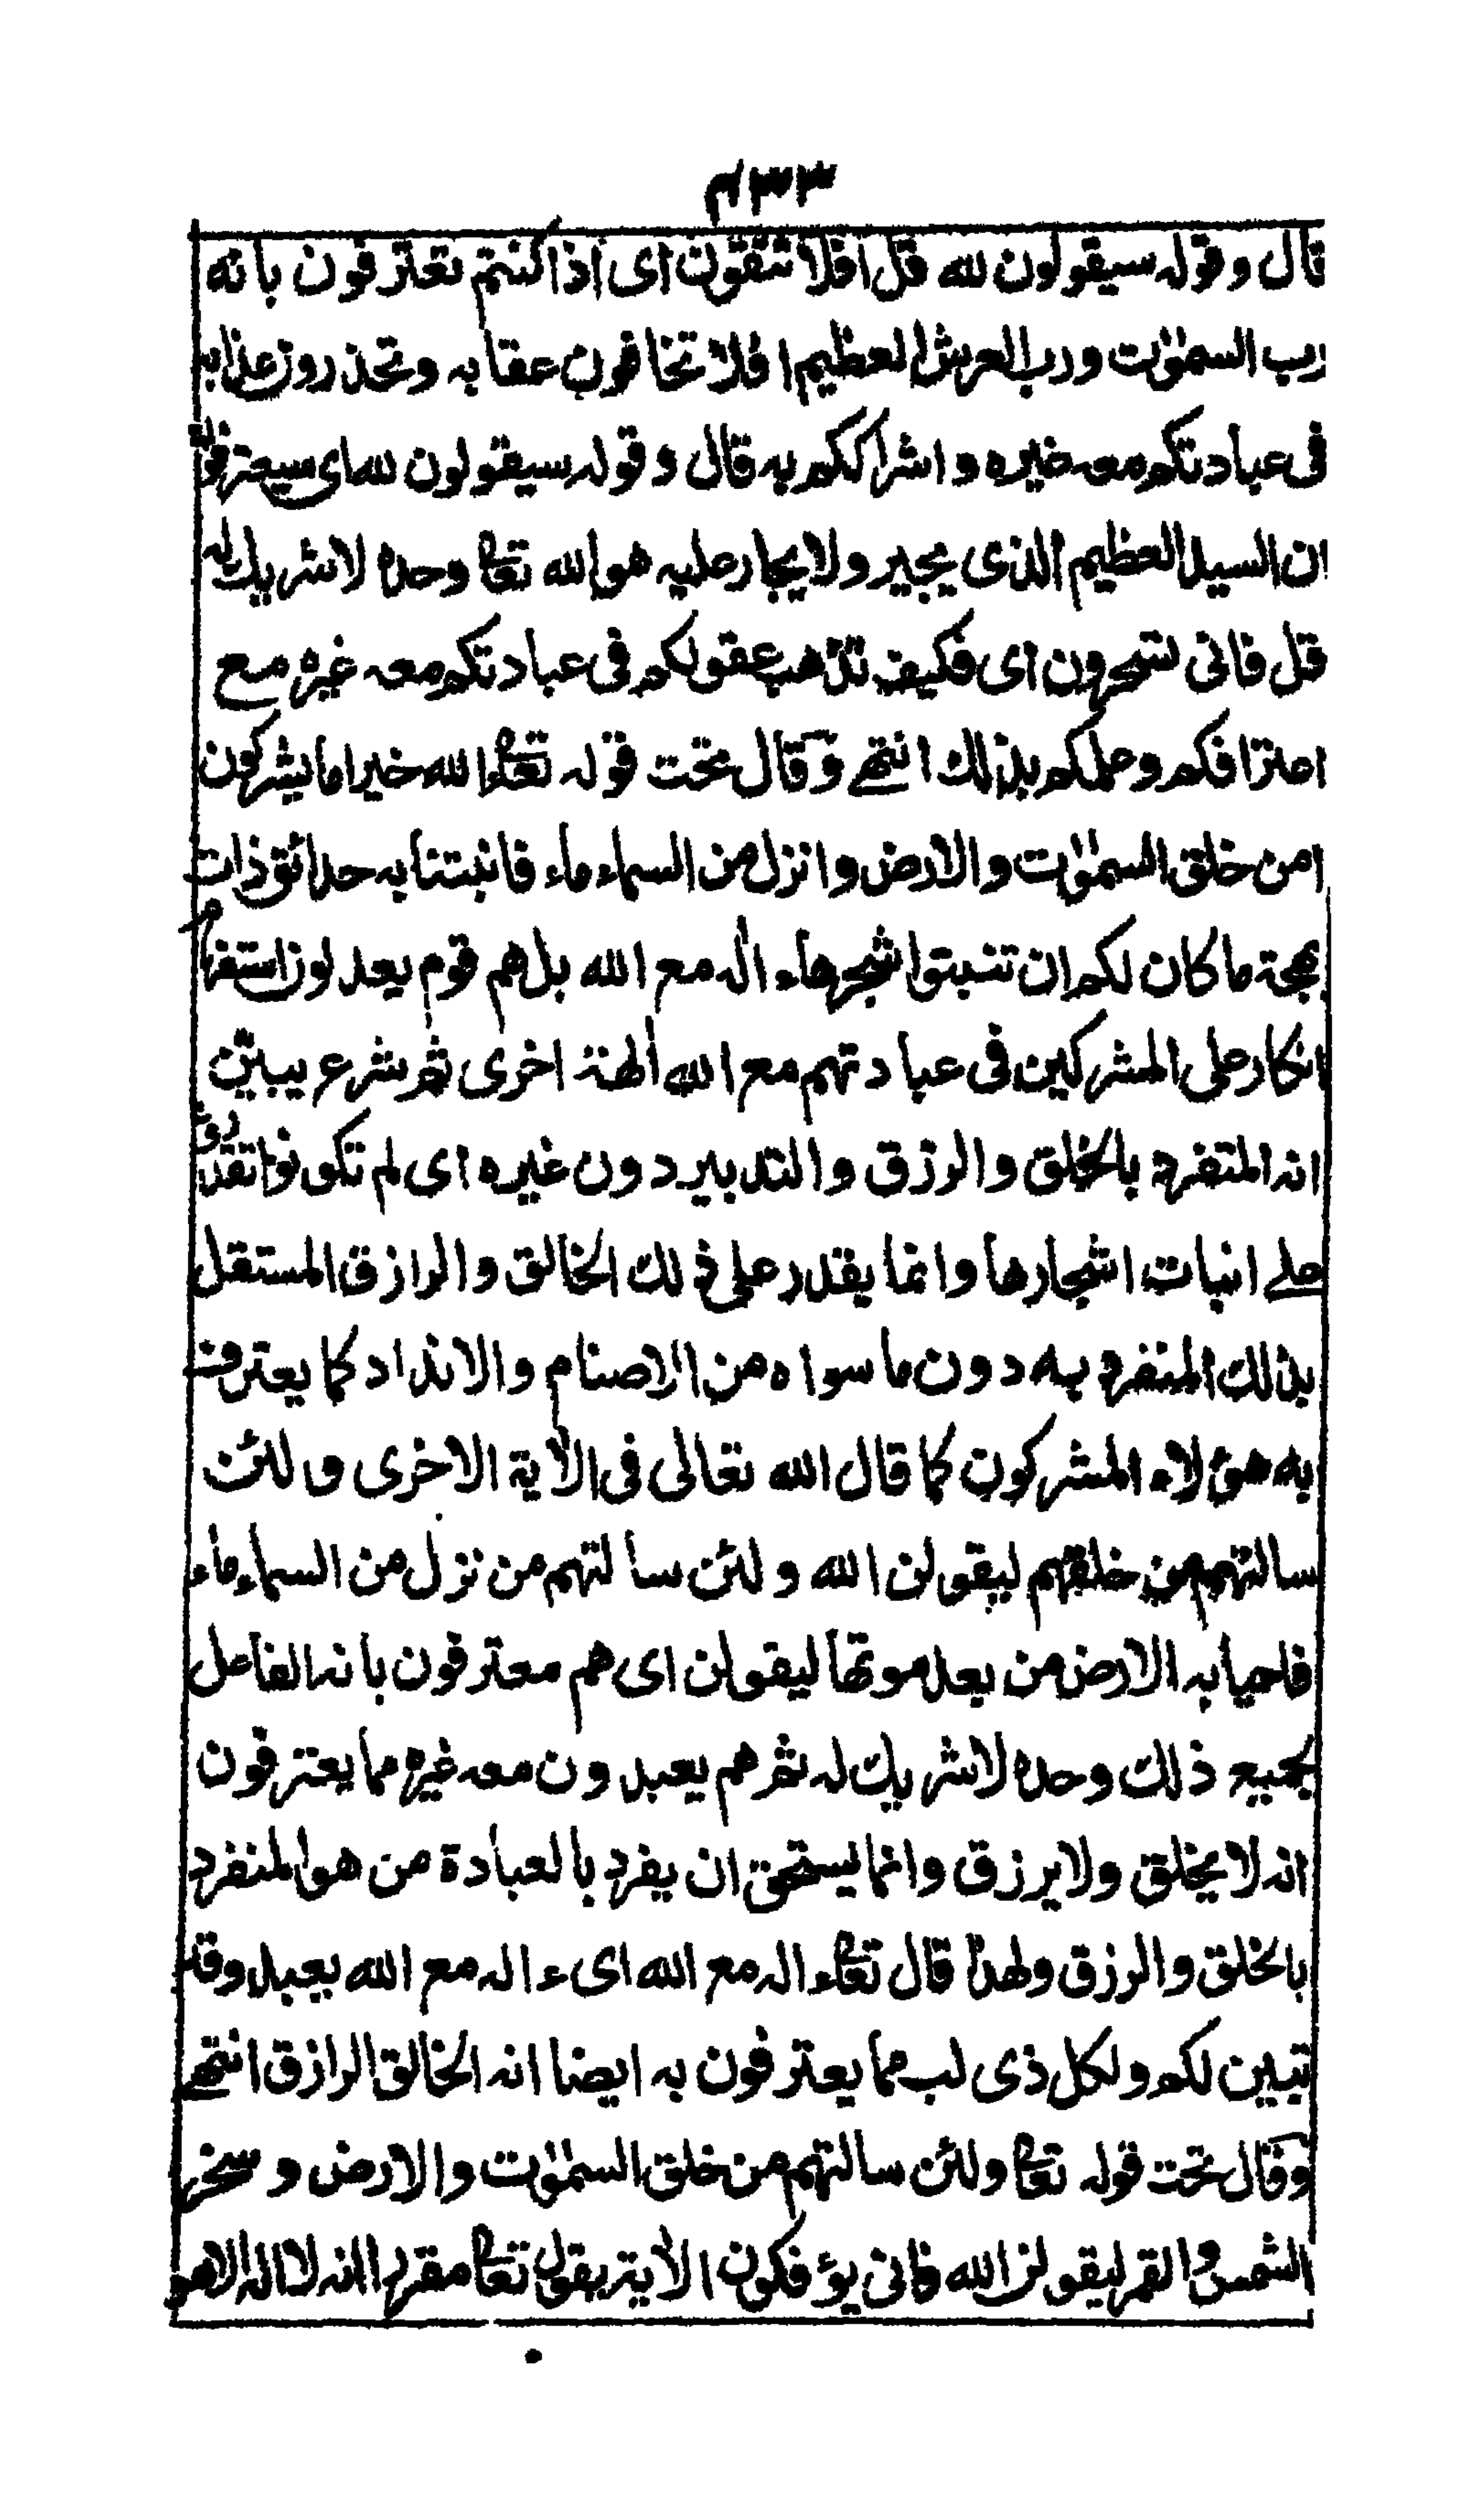 ۴۳۳
قال وقوله سيقولون لله قل افلا تتقون اى اذا كنتم تعترفون بانه
رب السمٰوٰت ورب العرش العظيم افلا تخافون عقابه وتحذرون عذابه
فى عبادتكم معه غيره واشراككم به قال وقوله سيقولون لله اى سيعترفون
ان السيد العظيم الذى يجير ولا يجار عليه هو الله تعا وحده لا شريك له
قل فانى تسحرون اى فكيف تذهب عقولكم فى عبادتكم معه غيره مع
اعترافكم وعلمكم بذلك انتهى وقال تحت قوله تعا ءالله خير اما يشركون
امن خلق السمٰوٰت والارض وانزل من السماء ماء فانبتنا به حدائق ذات
بهجة ما كان لكم ان تنبتوا شجرها ءاله مع الله بل هم قوم يعدلون استفهام
انكار على المشركين فى عبادتهم مع الله اٰلهة اخرى ثم شرع يبين
انه المتفرد بالخلق والرزق والتدبير دون غيره اى لم تكونوا تقدرون
على انبات اشجارها وانما يقدر على ذلك الخالق والرازق المستقل
بذلك المنفرد به دون ما سواه من الاصنام والانداد كما يعترف
به هؤلاء المشركون كما قال الله تعالى فى الاٰية الاخرى ولئن
سالتهم من خلقهم ليقولن الله ولئن سالتهم من نزل من السماء ماء
فاحيا به الارض من بعد موتها ليقولن اى هم معترفون بانه الفاعل
بجميع ذلك وحده لا شريك له ثم هم يعبدون معه غيره مما يعترفون
انه لا يخلق ولا يرزق وانما يستحق ان يفرد بالعبادة من هو المنفرد
بالخلق والرزق ولهذا قال تعا ءاله مع الله اى ءاله مع الله يعبد وقد
تبين لكم ولكل ذى لب مما يعترفون به ايضا انه الخالق الرازق انتهى
وقال تحت قوله تعا ولئن سالتهم من خلق السمٰوٰت والارض وسخر
الشمس والقمر ليقولن الله فانى يؤفكون الاٰية يقول تعا مقررا انه لا اله الا هو